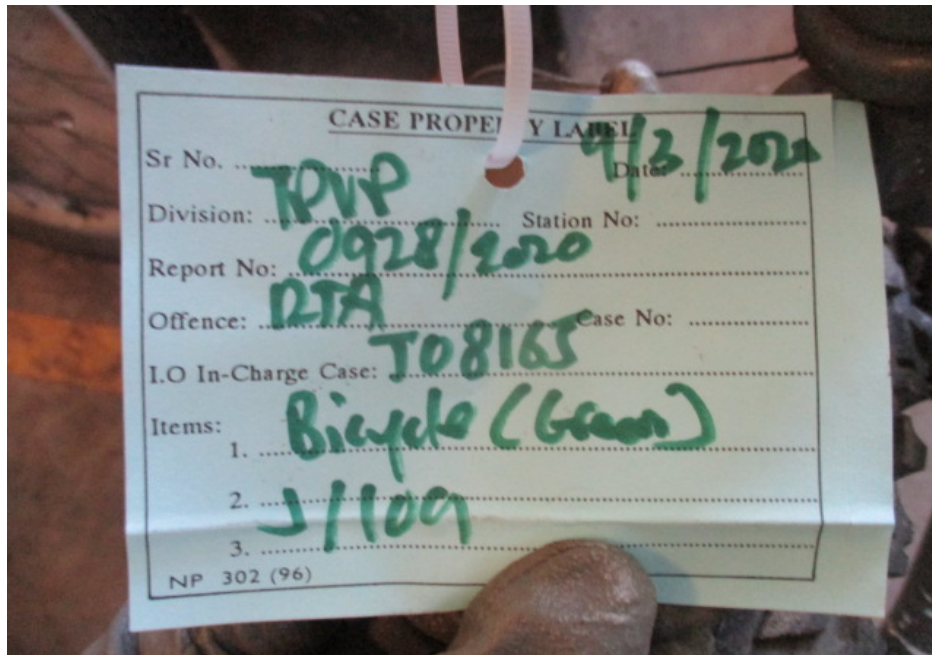 CASE PROPERTY LABEL
Sr No. Date: 9/3/2020
Division: TPVP Station No:
Report No: 0928/2020
Offence: RTA Case No:
I.O In-Charge Case: T08165
Items:
1. Bicycle (Green)
2. J/109
3.
NP 302 (96)